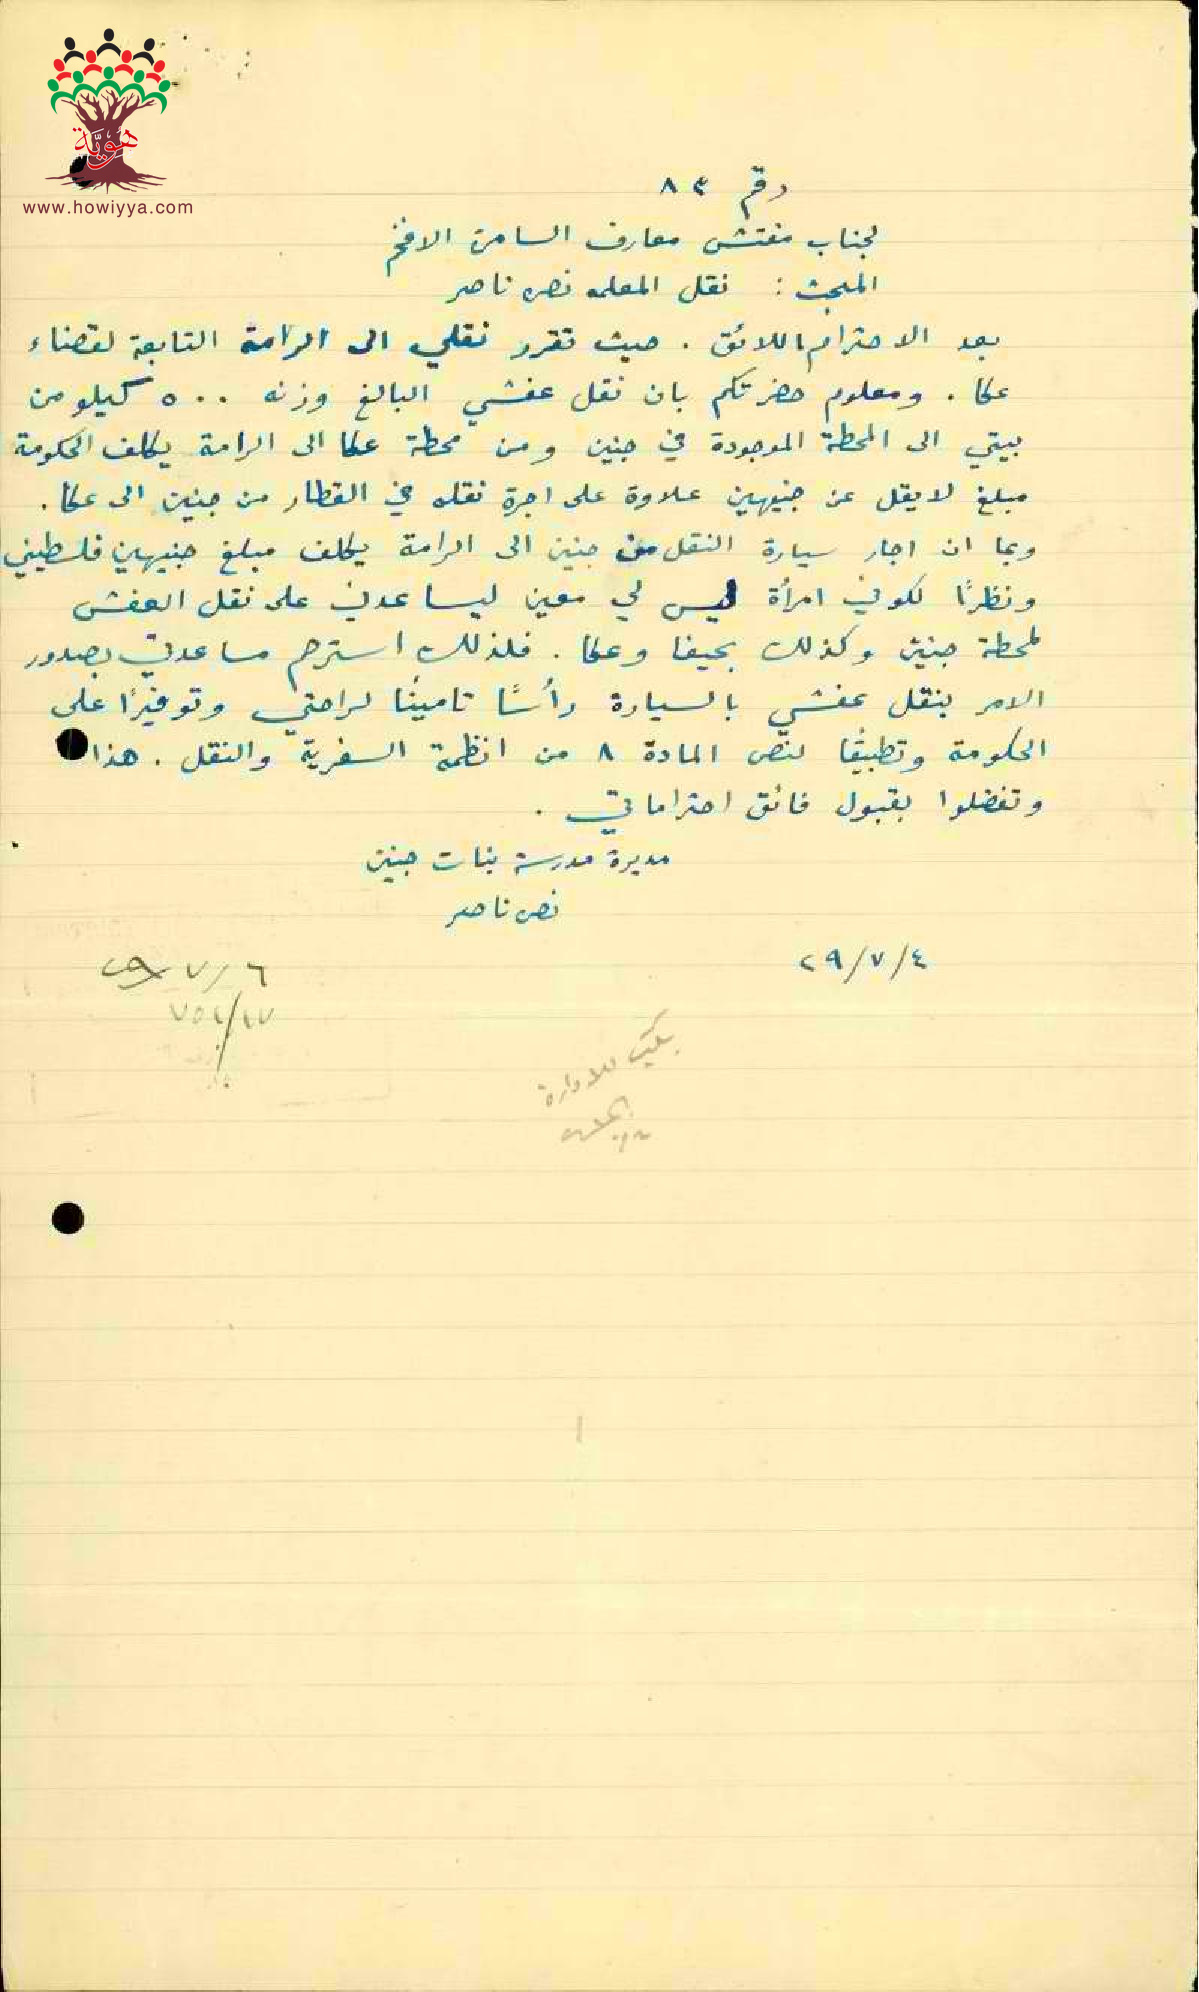 هوية
www.howiyya.com
رقم ٨٣
لجناب مفتش معارف السامرة الافخم
المبحث : نقل المعلمه نصره ناصر
بعد الاحترام اللائق . حيث تقرر نقلي الى الرامة التابعة لقضاء
عكا . ومعلوم حضرتكم بان نقل عفشي البالغ وزنه ٥٠٠ كيلو من
بيتي الى المحطة الموجودة في جنين ومن محطة عكا الى الرامة يكلف الحكومة
مبلغ لا يقل عن جنيهين علاوة على اجرة نقله في القطار من جنين الى عكا .
وبما ان اجار سيارة النقل من جنين الى الرامة يكلف مبلغ جنيهين فلسطيني
ونظرًا لكوني امرأة ليس لي معين ليساعدني على نقل العفش
لمحطة جنين وكذلك بحيفا وعكا . فلذلك استرحم مساعدتي بصدور
الامر بنقل عفشي بالسيارة رأسًا تامينًا لراحتي وتوفيرًا على
الحكومة وتطبيقًا لنص المادة ٨ من انظمة السفرية والنقل . هذا
وتفضلوا بقبول فائق احتراماتي .
مديرة مدرسة بنات جنين
نصره ناصر
٢٩/٧/٤
٢٩/٧/٦
٧٥٤/١٧
يكتب للادارة